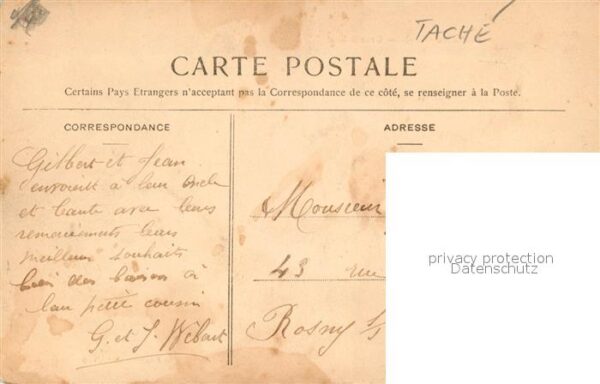 TACHÉ
CARTE POSTALE
Certains Pays Etrangers n'acceptant pas la Correspondance de ce côté, se renseigner à la Poste.
CORRESPONDANCE
Gilbert et Jean
envoient à leur oncle
et tante avec leurs
remerciements leurs
meilleurs souhaits
bien des baisers à
leur petit cousin
G. et J. Wébart
ADRESSE
Monsieur
43 rue
Rosny s/s
privacy protection
Datenschutz